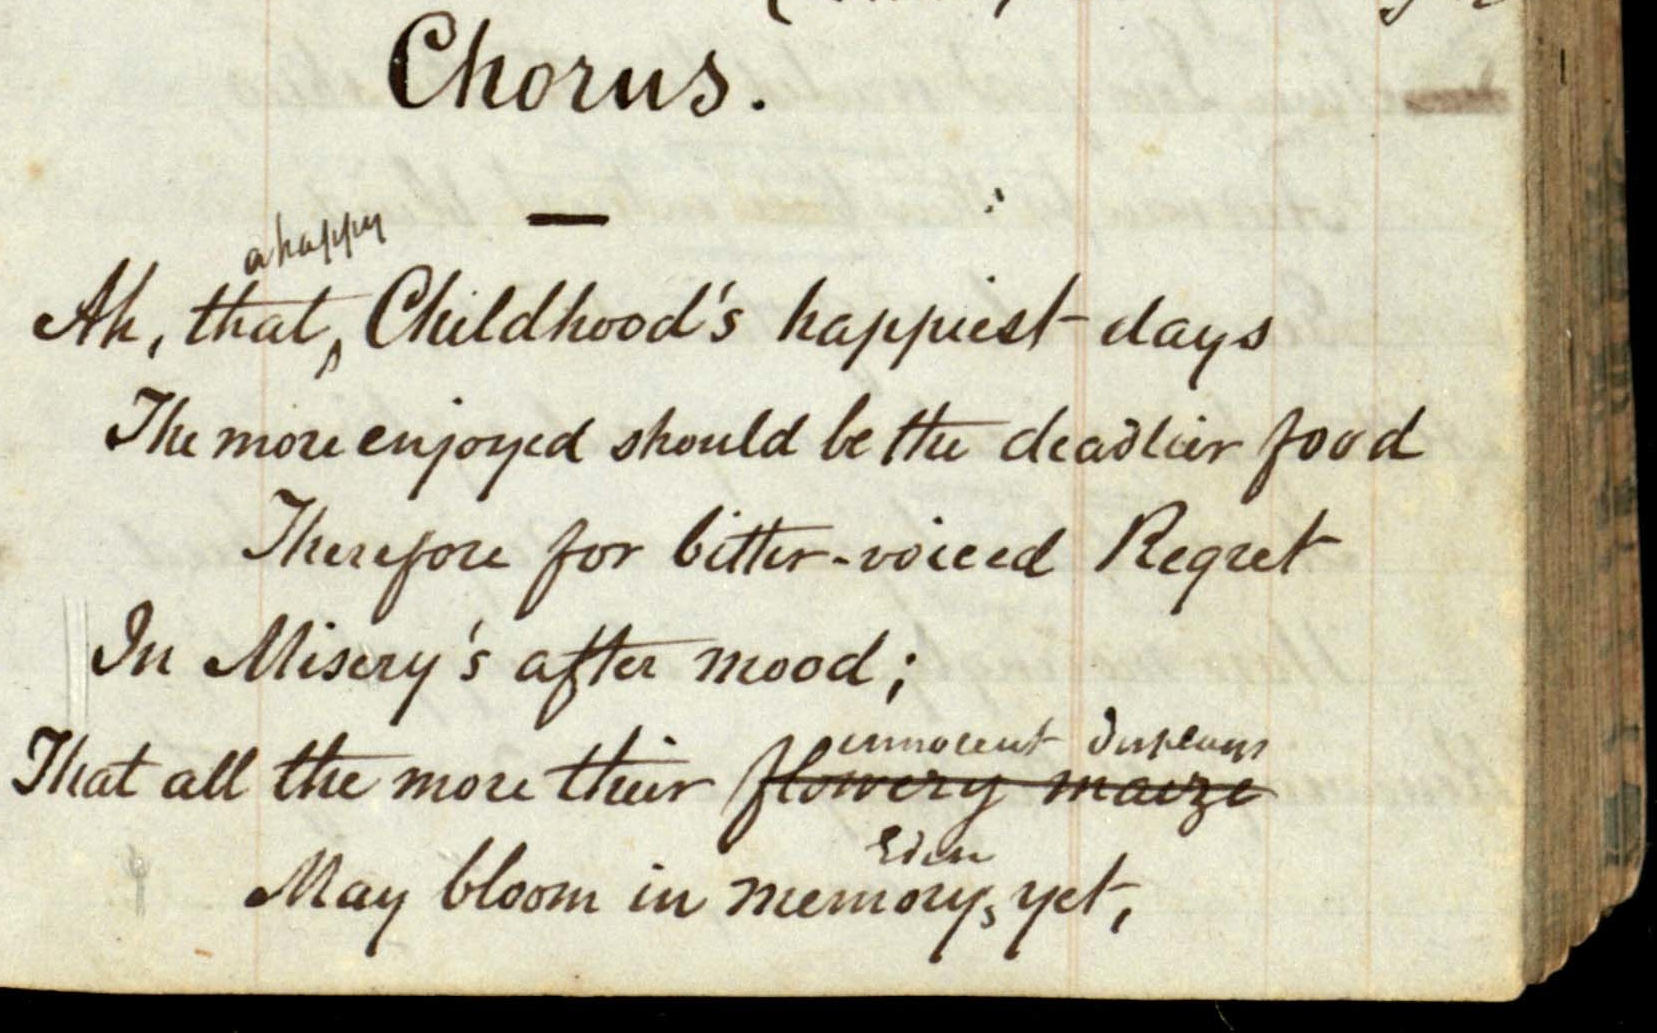 Chorus.
a happy
Ah, that, Childhood's happiest days
The more enjoyed should be the deadlier food
Therefore for bitter-voiced Regret
In Misery's after mood;
innocent displays
That all the more their flowery maize
Eden
May bloom in memory, yet,